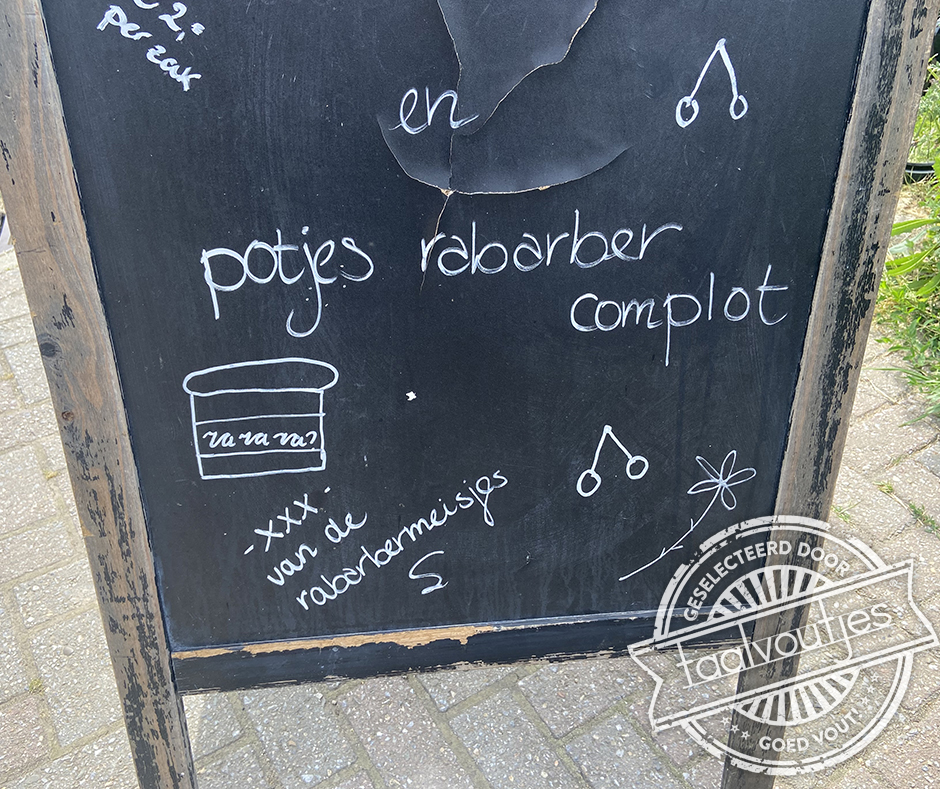 € 2,=
per zak
en
potjes rabarber
complot
ra ra ra?
-xxx-
van de
rabarbermeisjes
GESELECTEERD DOOR
taalvoutjes
GOED VOUT!